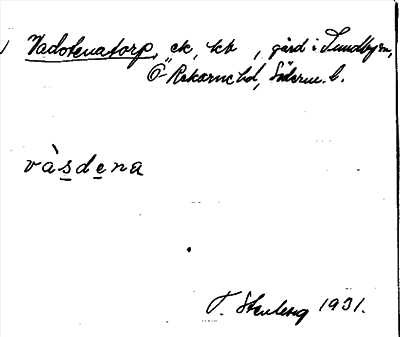 Vadstenatorp, ek, kb, gård i Lundby sn,
Ö Rekarne hd, Söderm. l.
vàsdena
T. Stenberg 1931.